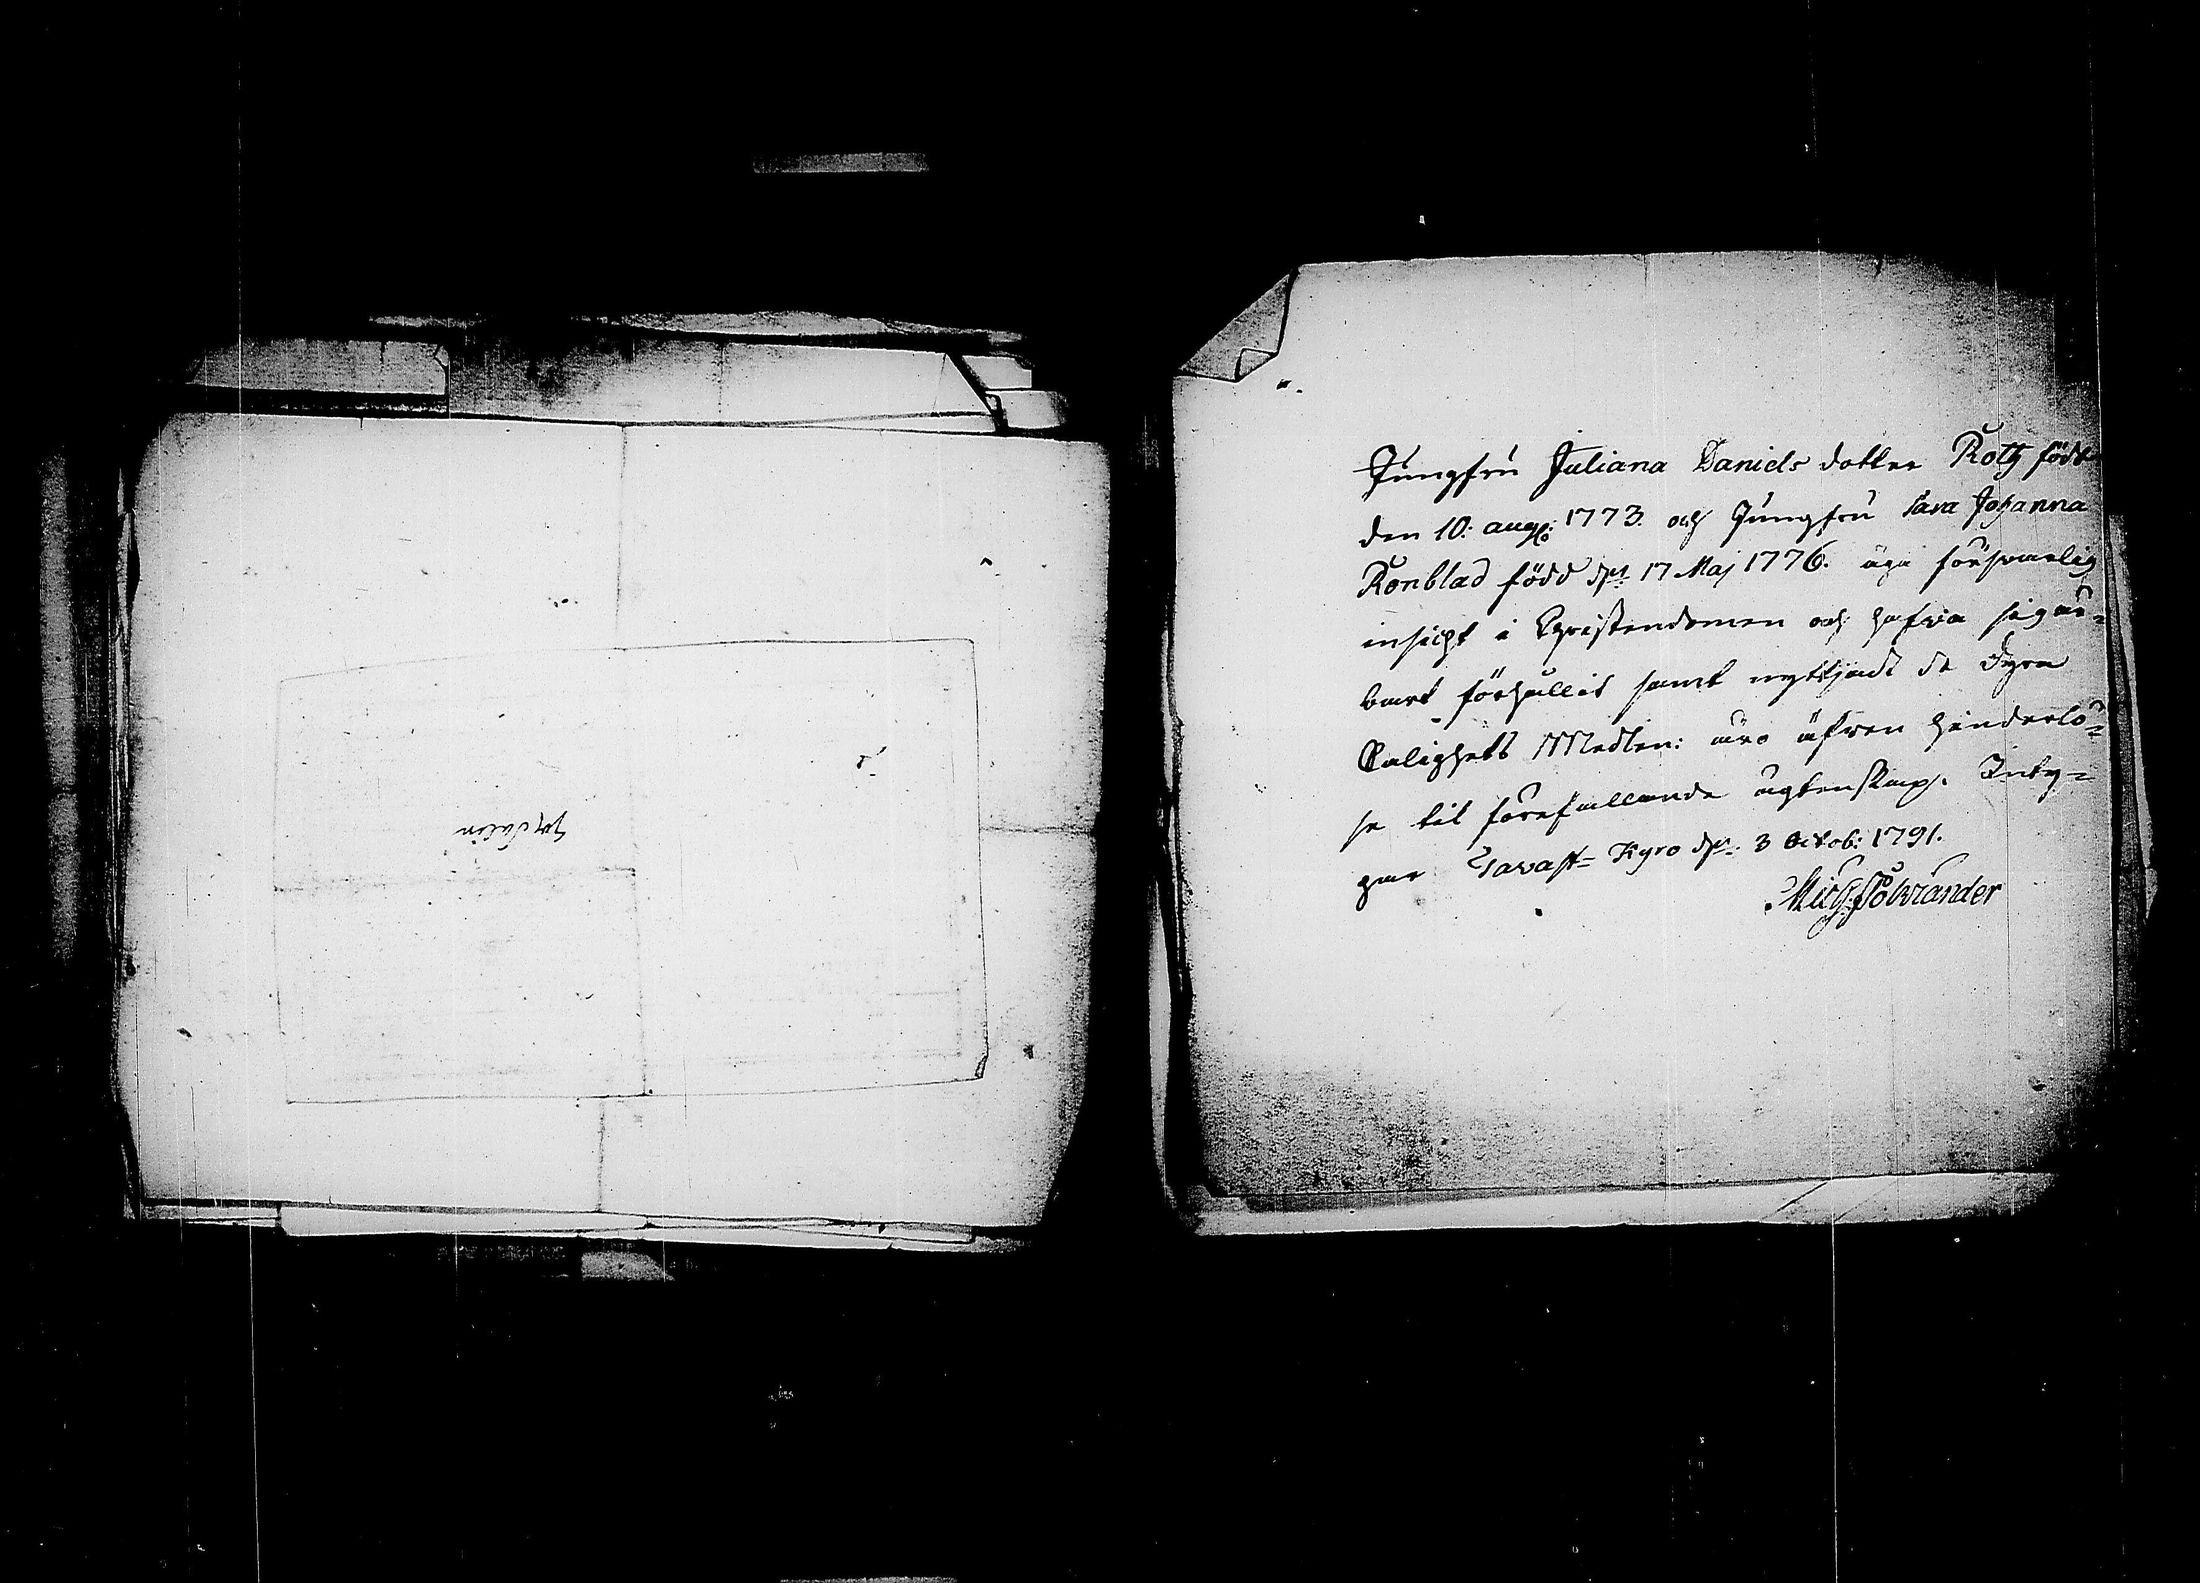 Jungfru Juliana Daniels dotter Roth född
den 10: aug: 1773. och Jungfru Sara Johanna
Ronblad född dn 17 Maj 1776. äga försvarlig
insicht i Christendomen och hafva sig är=
bart förhållit samt nyttjadt de dyra
Salighets Medlen: äro äfven hinderlö=
se til förefallande ägtenskap. Inty=
gar Tavast= Kyro dn: 3 Octob: 1791.
Mich: Polviander